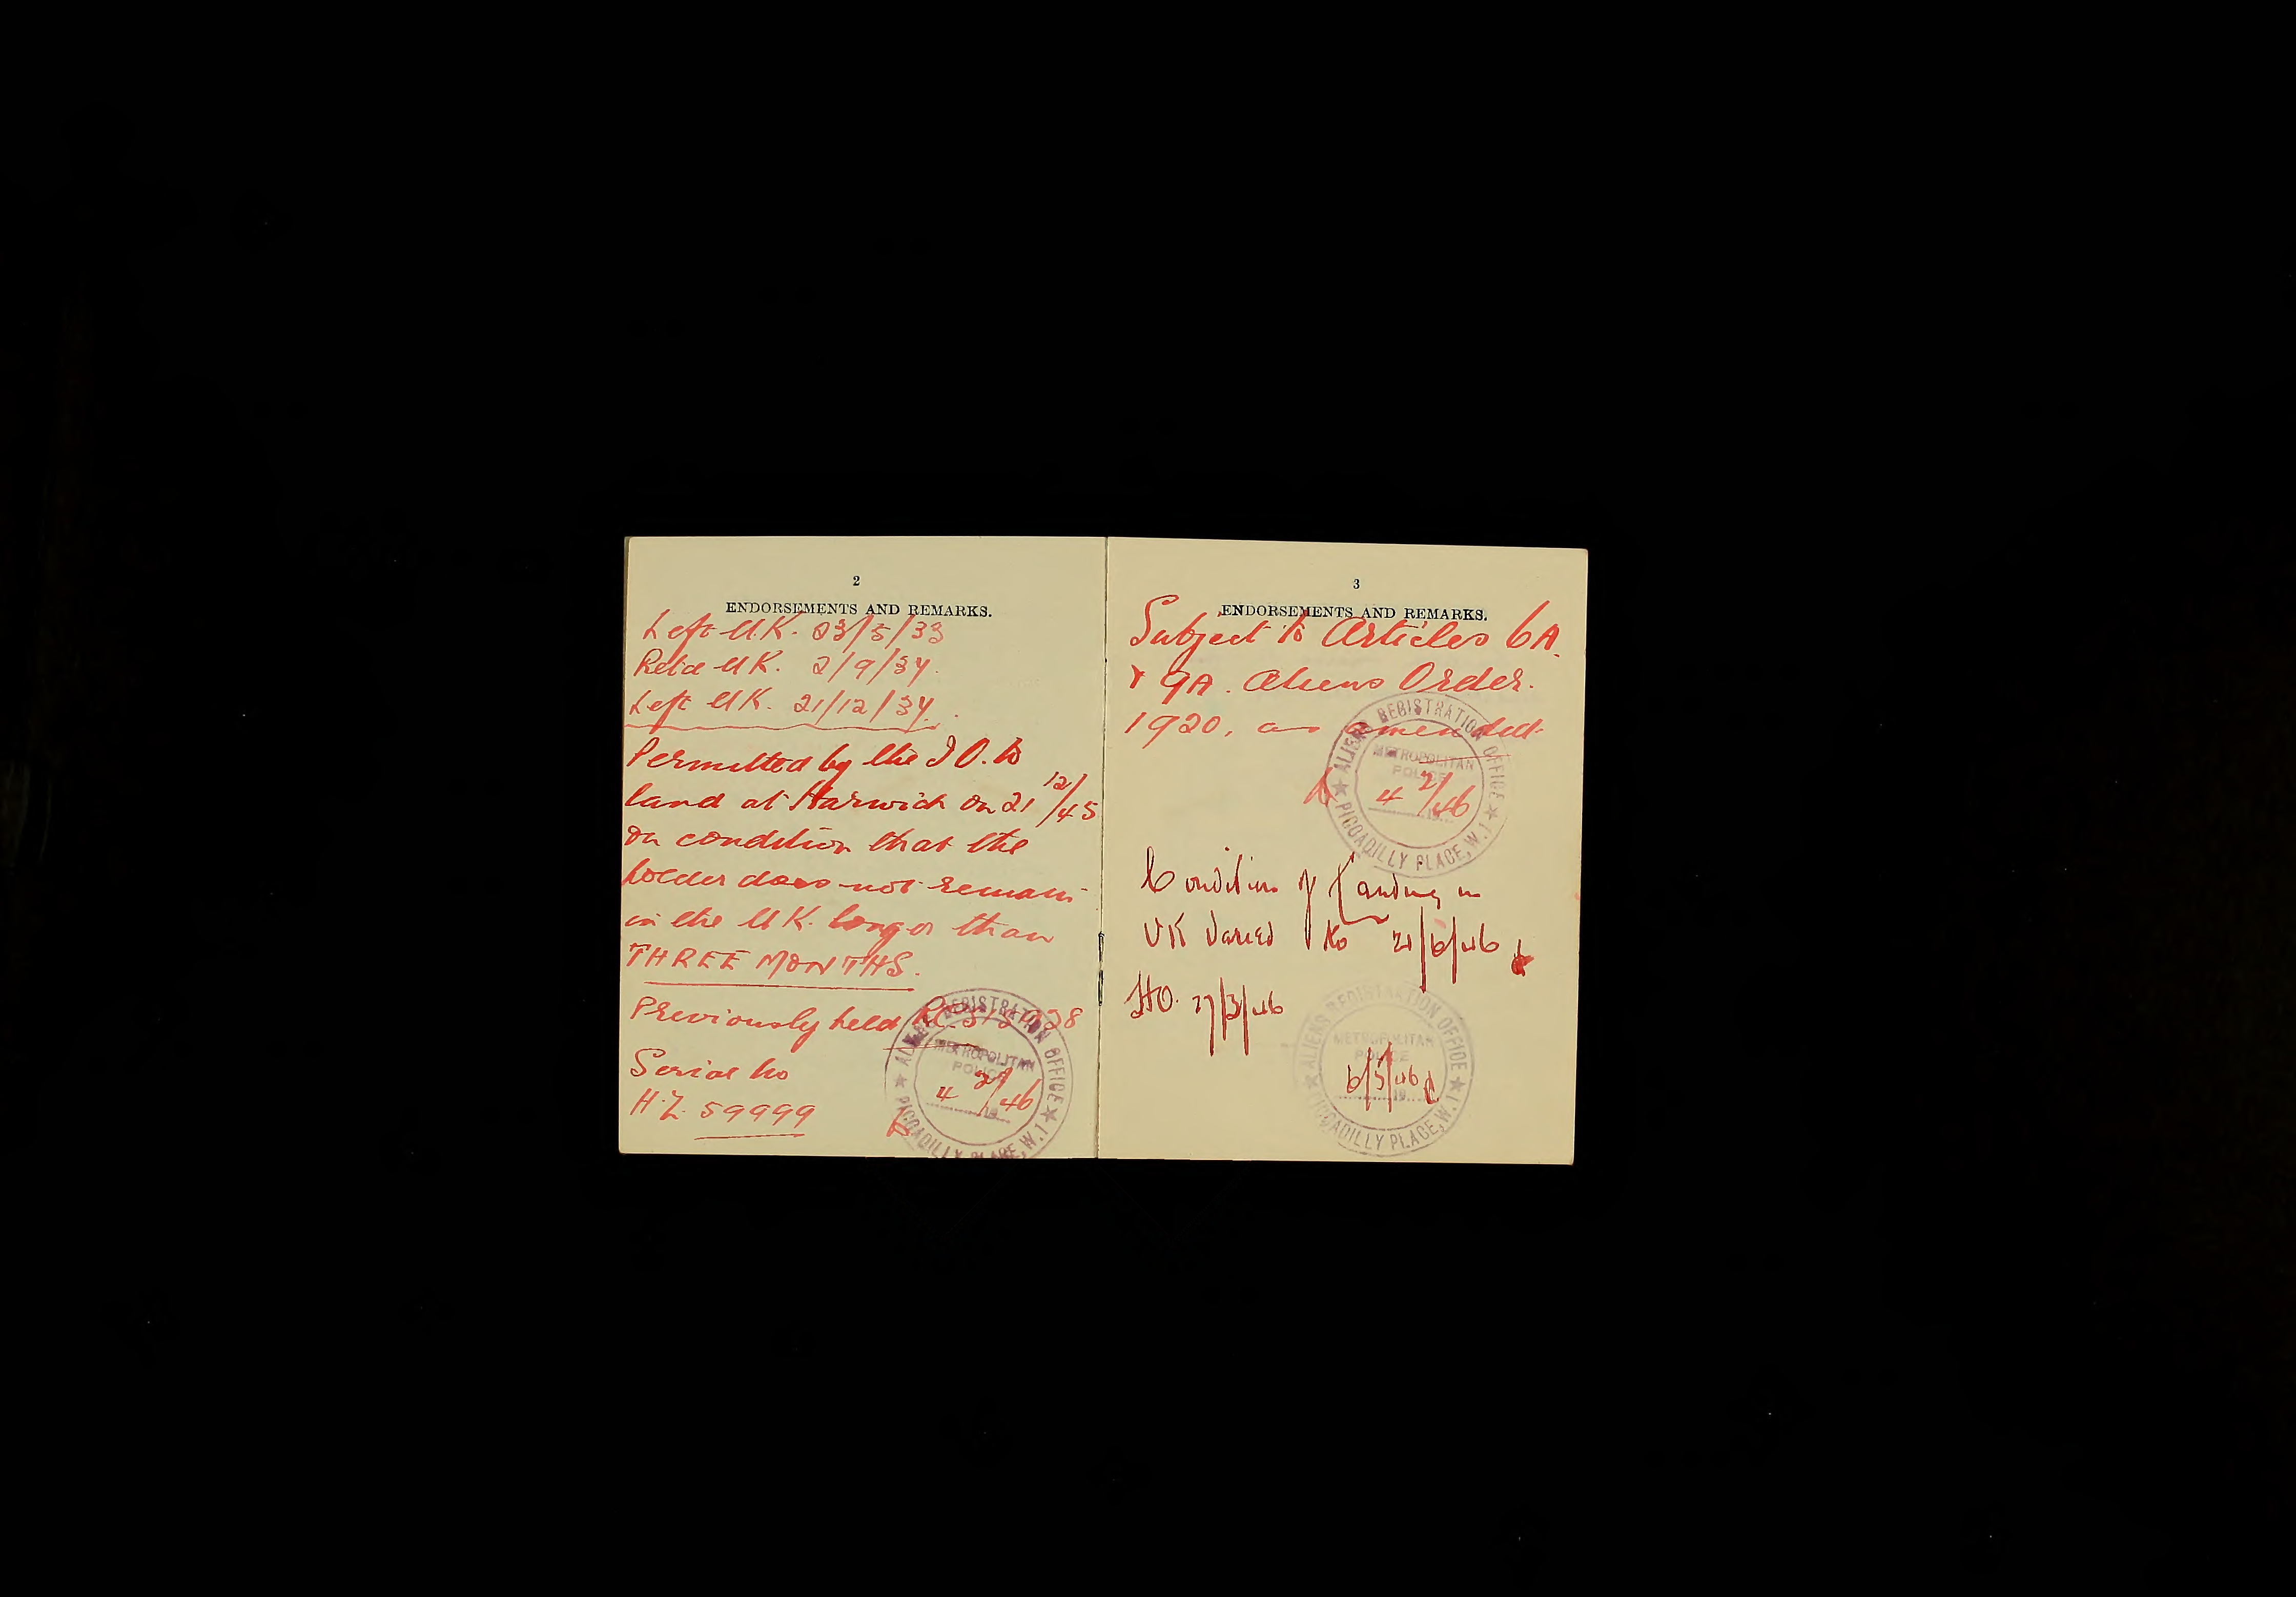 2
ENDORSEMENTS AND REMARKS.
Left U.K. 23/5/33
Retd U.K. 2/9/34.
Left U.K. 21/12/34.
Permitted by the I.O. to
land at Harwich on 21/12/45
on condition that the
holder does not remain
in the U.K. longer than
THREE MONTHS.
Previously held R.C.
Serial No
H.Z. 59999
ALIENS REGISTRATION OFFICE
METROPOLITAN
POLICE
4 2/46
19
PICCADILLY PLACE, W.1
3
ENDORSEMENTS AND REMARKS.
Subject to Articles 6A.
& 9A. Aliens Order.
1920, as amended.
ALIENS REGISTRATION OFFICE
METROPOLITAN
POLICE
4 2/46
19
PICCADILLY PLACE, W.1
Condition of Landing in
UK Varied to 21/6/46
HO. 27/3/46
ALIENS REGISTRATION OFFICE
METROPOLITAN
POLICE
6/5/46
19
PICCADILLY PLACE, W.1